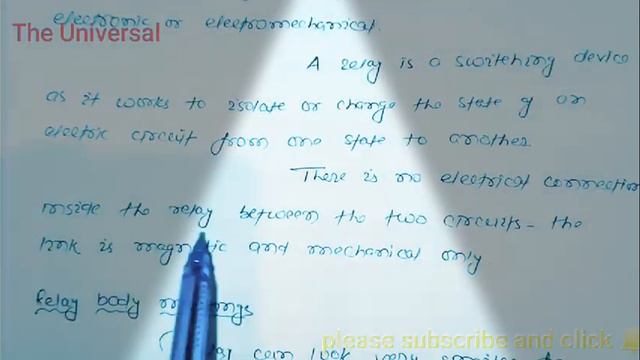 electronic or electromechanical.
The Universal
A relay is a switching device
as it works to isolate or change the state of an
electric circuit from one state to another
There is no electrical connection
inside the relay between the two circuits - the
link is magnetic and mechanical only
Relay body
can look very
please subscribe and click